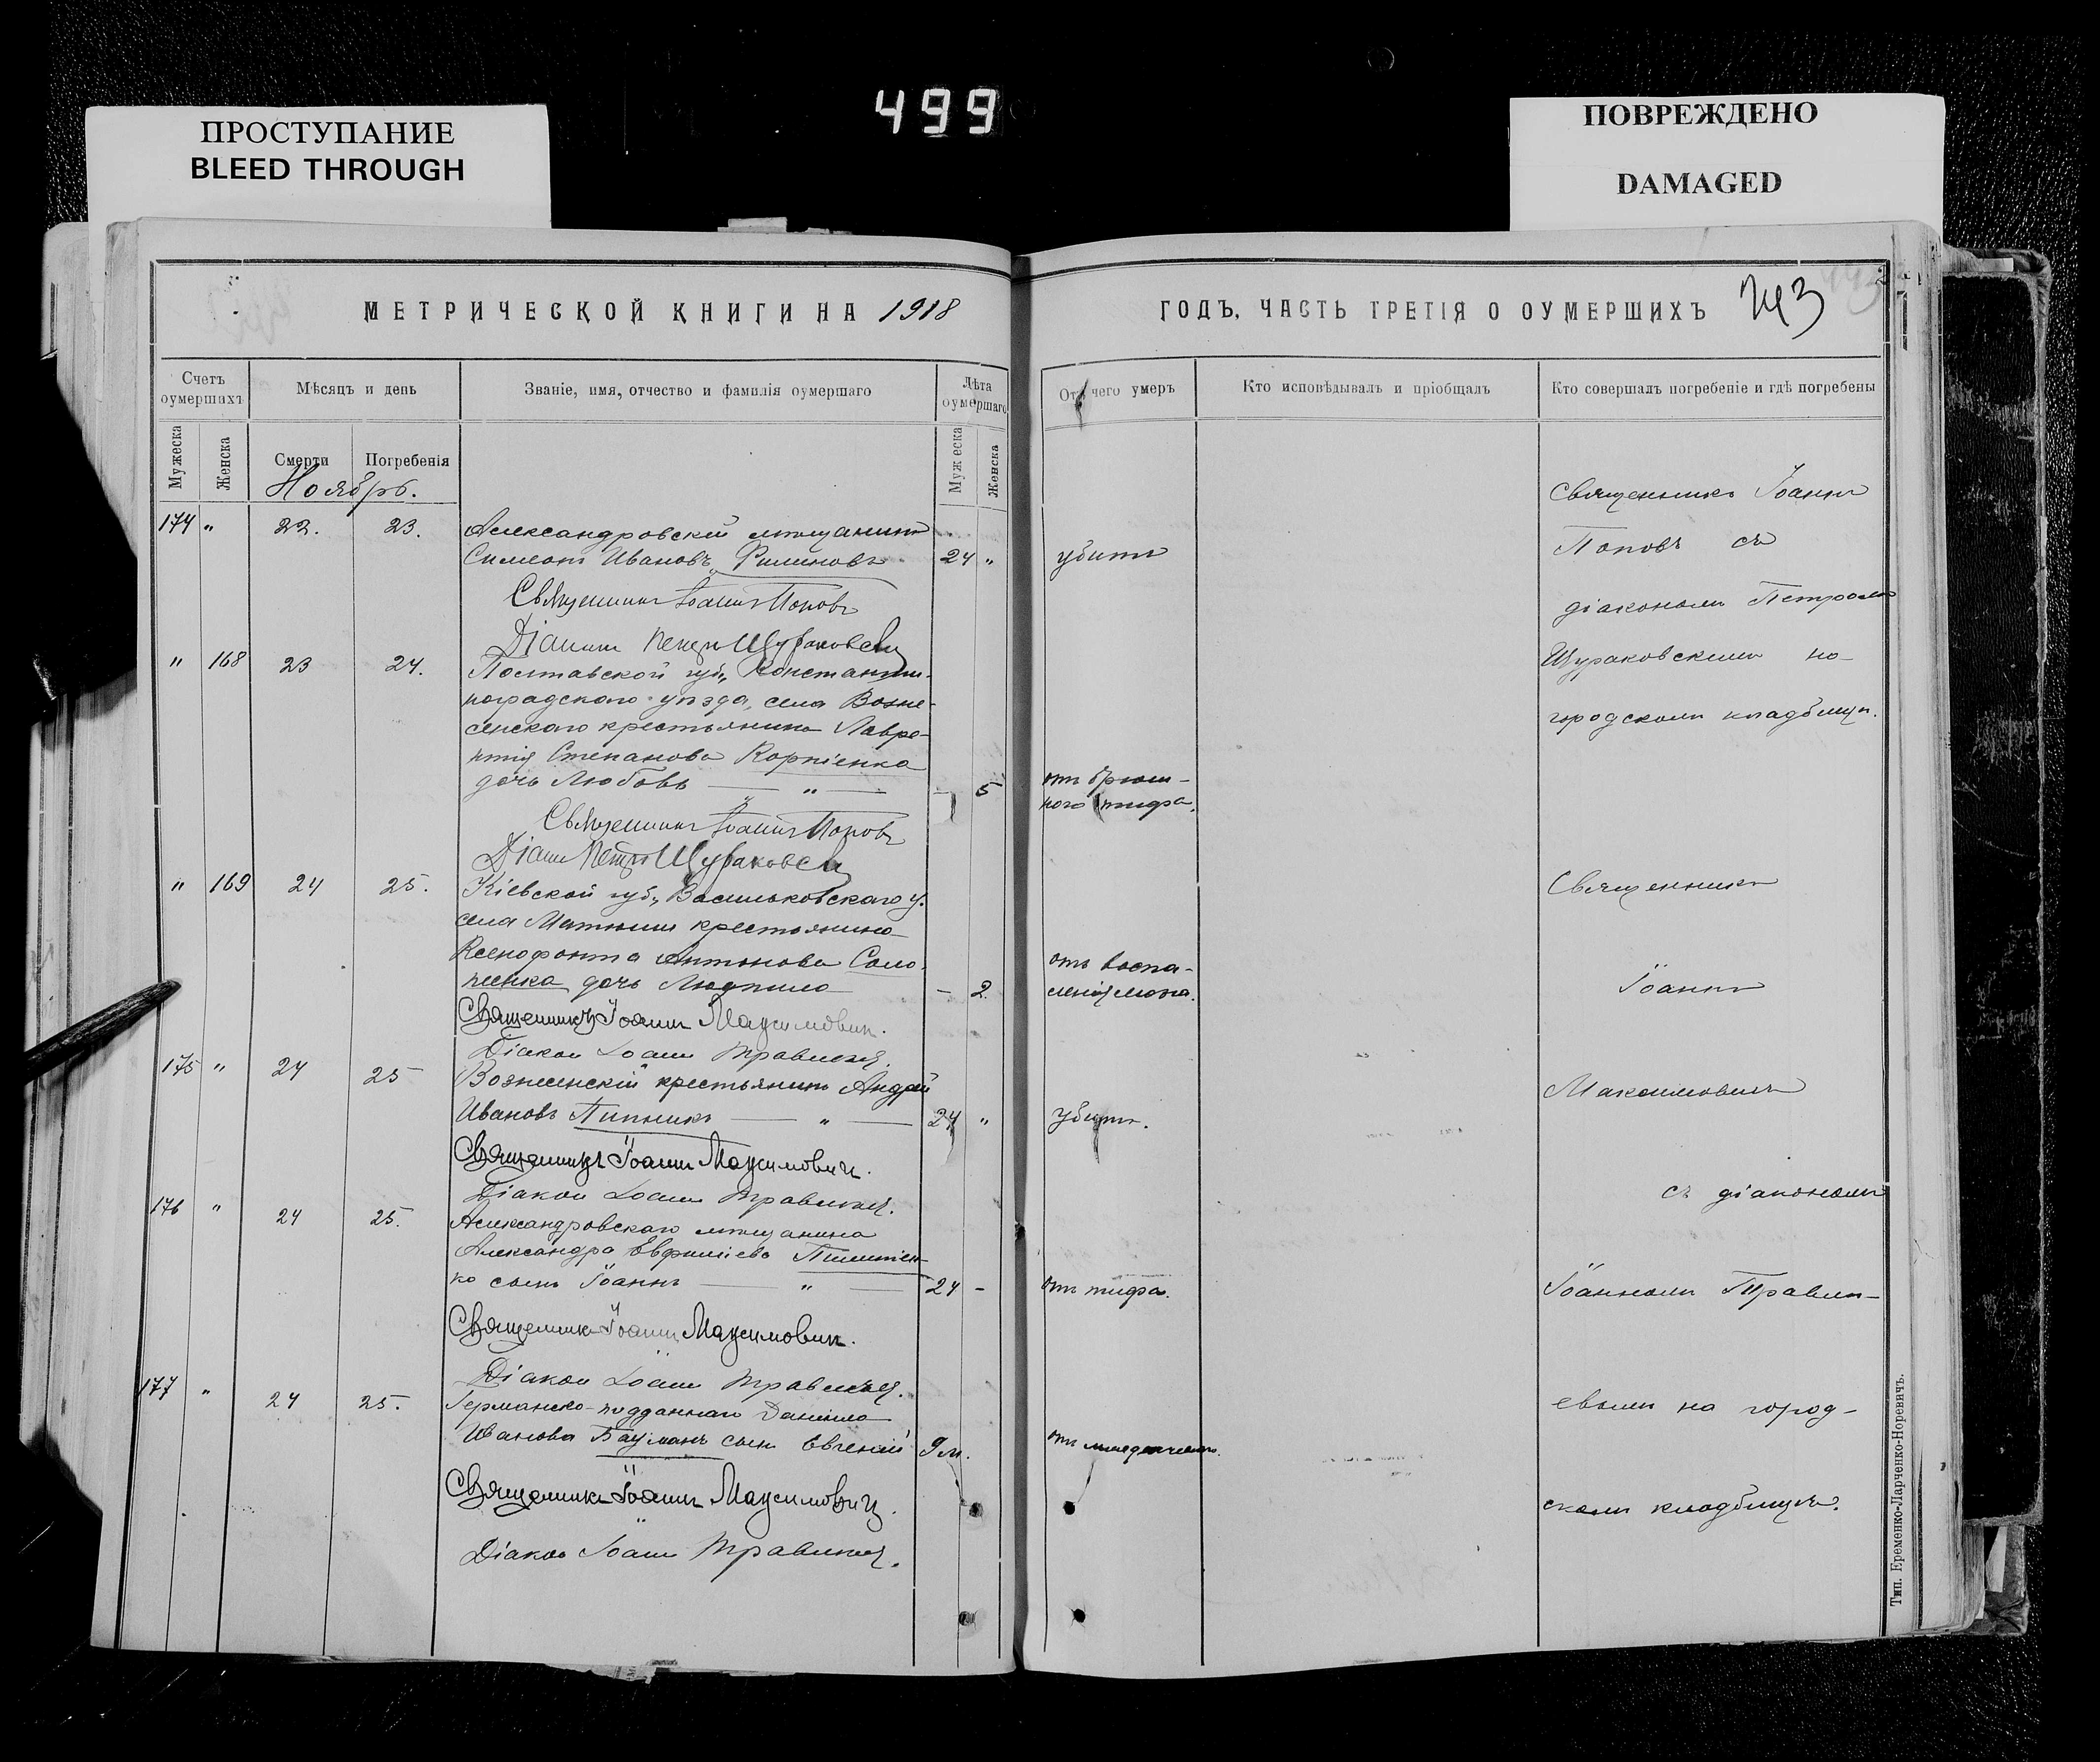 499
ПРОСТУПАНИЕ
BLEED THROUGH
ПОВРЕЖДЕНО
DAMAGED
МЕТРИЧЕСКОЙ КНИГИ НА 1918
ГОДЪ, ЧАСТЬ ТРЕТІЯ О ОУМЕРШИХЪ
Счетъ оумершихъ
Мѣсяцъ и день
Званіе, имя, отчество и фамилія оумершаго
Лѣта оумершаго
Отъ чего умеръ
Кто исповѣдывалъ и пріобщалъ
Кто совершалъ погребеніе и гдѣ погребены
Мужеска
Женска
Смерти
Погребенія
Мужеска
Женска
Ноябрь.
174 " 22. 23. Александровскій мѣщанинъ
Симеонъ Ивановъ Филиновъ 24 " убитъ
Священникъ Іоаннъ Поповъ
Діаконъ Петръ Щураковскій
" 168 23 24. Полтавской губ., Константи-
ноградскаго уѣзда, села Возне-
сенскаго крестьянина Лавре-
нтія Степанова Корніенка
дочь Любовь — " — - 5 отъ брюш-
ного тифа.
Священникъ Іоаннъ Поповъ
Діаконъ Петръ Щураковскій
" 169 24 25. Кіевской губ., Васильковскаго у.
села крестьянина
Ксенофонта Антонова Соло-
пенка дочь Людмила - 2 отъ воспа-
ленія мозга.
Священникъ Іоаннъ Максимовичъ.
Діаконъ Іоаннъ
175 " 24 25 Вознесенскій крестьянинъ Андрей
Ивановъ Пипникъ — " — 24 " убитъ.
Священникъ Іоаннъ Максимовичъ.
Діаконъ Іоаннъ
176 " 24 25. Александровскаго мѣщанина
Александра Евфиміева
ко сынъ Іоаннъ — " — 24 - отъ тифа.
Священникъ Іоаннъ Максимовичъ.
Діаконъ Іоаннъ
177 " 24 25. Германско-подданнаго Даніила
Иванова Бауманъ сынъ Евгеній 9 м. отъ
Священникъ Іоаннъ Максимовичъ.
Діаконъ Іоаннъ
Священникъ Іоаннъ
Поповъ съ
діакономъ Петромъ
Щураковскимъ на
городскомъ кладбищѣ.
Священникъ
Іоаннъ
Максимовичъ
съ діакономъ
Іоанномъ Травлі-
евымъ на город-
скомъ кладбищѣ.
Тип. Еременко-Ларченко-Норевичъ.